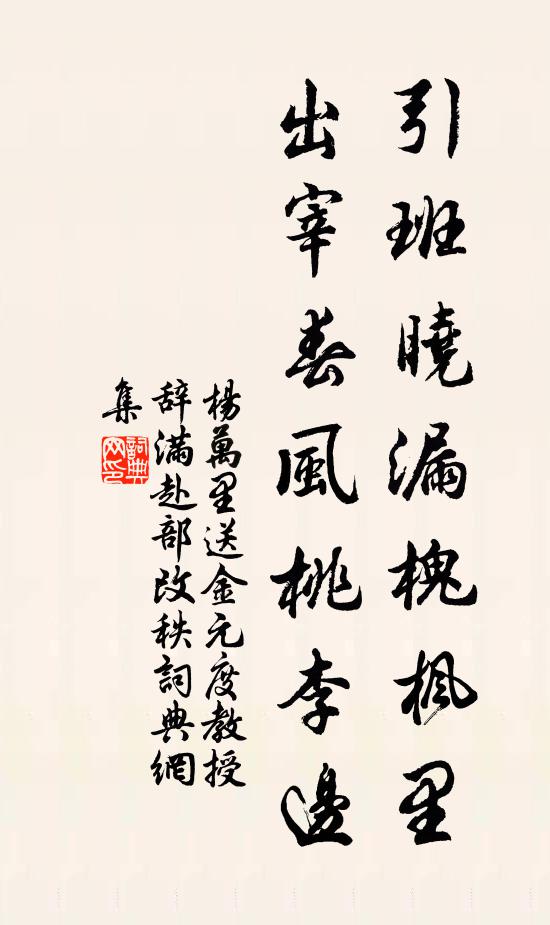 引班曉漏槐楓里
出宰春風桃李邊
楊萬里送金元度教授
辭滿赴部改秩詞典網
集
詞典
网印